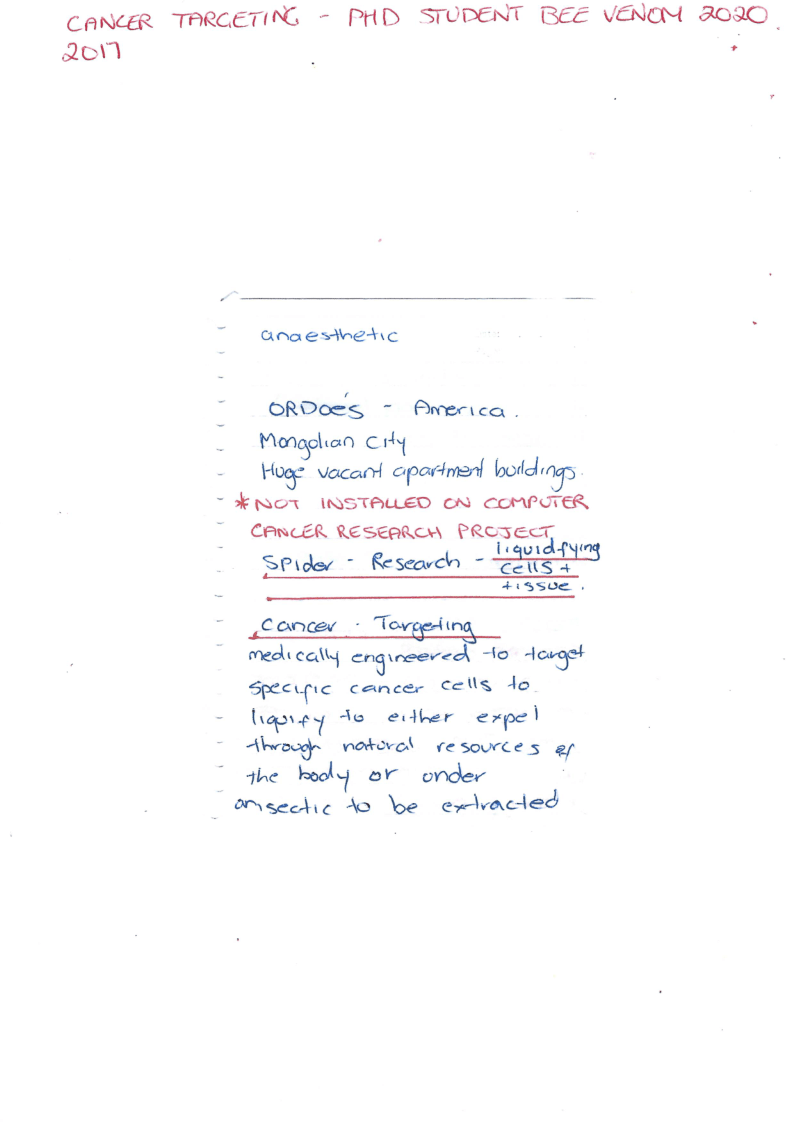 CANCER TARGETING - PHD STUDENT BEE VENOM 2020
2017
anaesthetic
ORDoéS - America.
Mongolian City
Huge vacant apartment buildings.
* NOT INSTALLED ON COMPUTER
CANCER RESEARCH PROJECT
Spider - Research - liquidfying
cells +
tissue.
Cancer - Targeting
medically engineered to target
specific cancer cells to
liquify to either expel
through natural resources of
the body or under
anisectic to be extracted